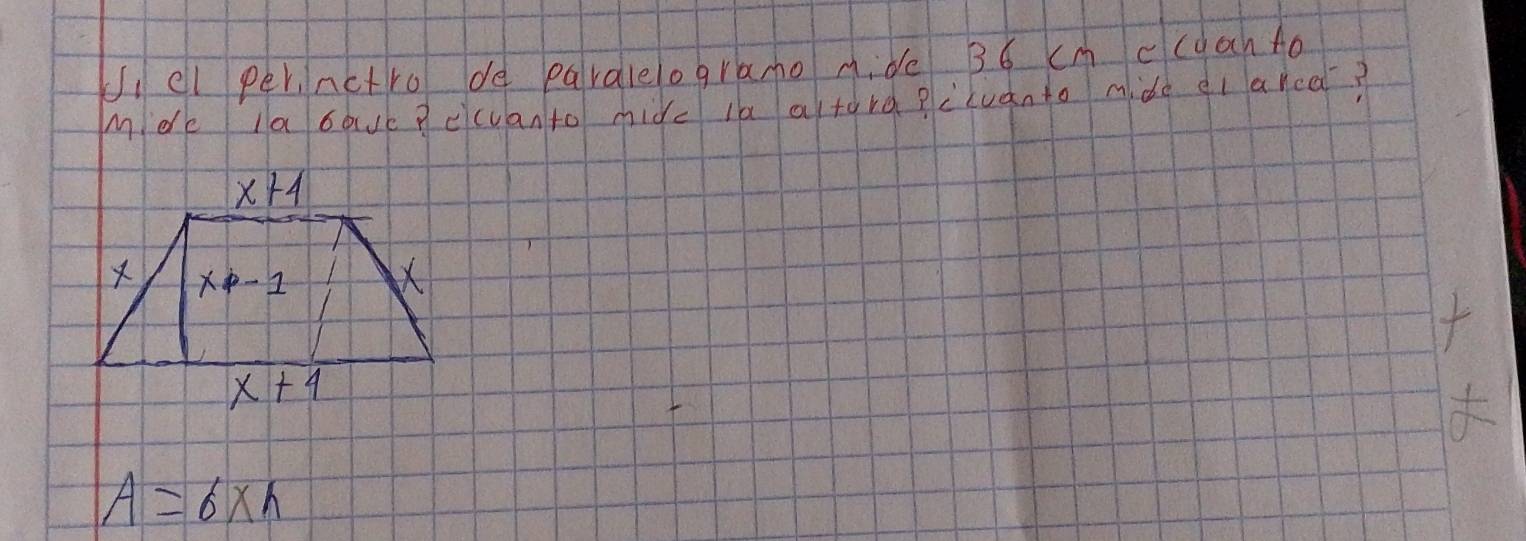 Si el perimetro de paralelogramo mide 36 cm ¿cuanto
mide la base? ¿cuanto mide la altura? ¿cuanto mide el area?
x+4
x x-1 x
x+4
A=bxh